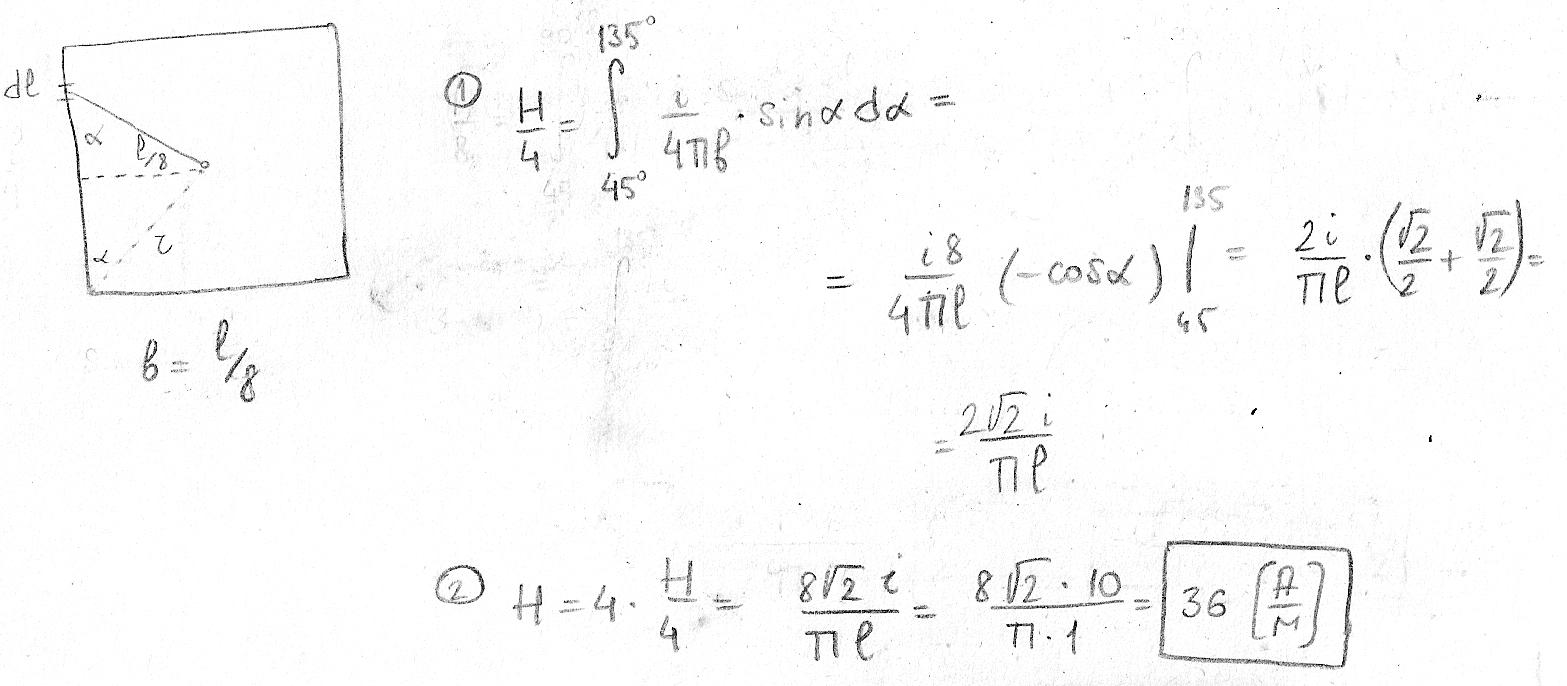 dl
α
l/8
α
r
b = l/8
① H/4 = ∫45°135° i/4πb · sinα dα =
= i8/4πl (-cosα) |45135 = 2i/πl · (√2/2 + √2/2) =
= 2√2 i/πl
② H = 4 · H/4 = 8√2 i/πl = 8√2 · 10/π · 1 = 36 [A/M]